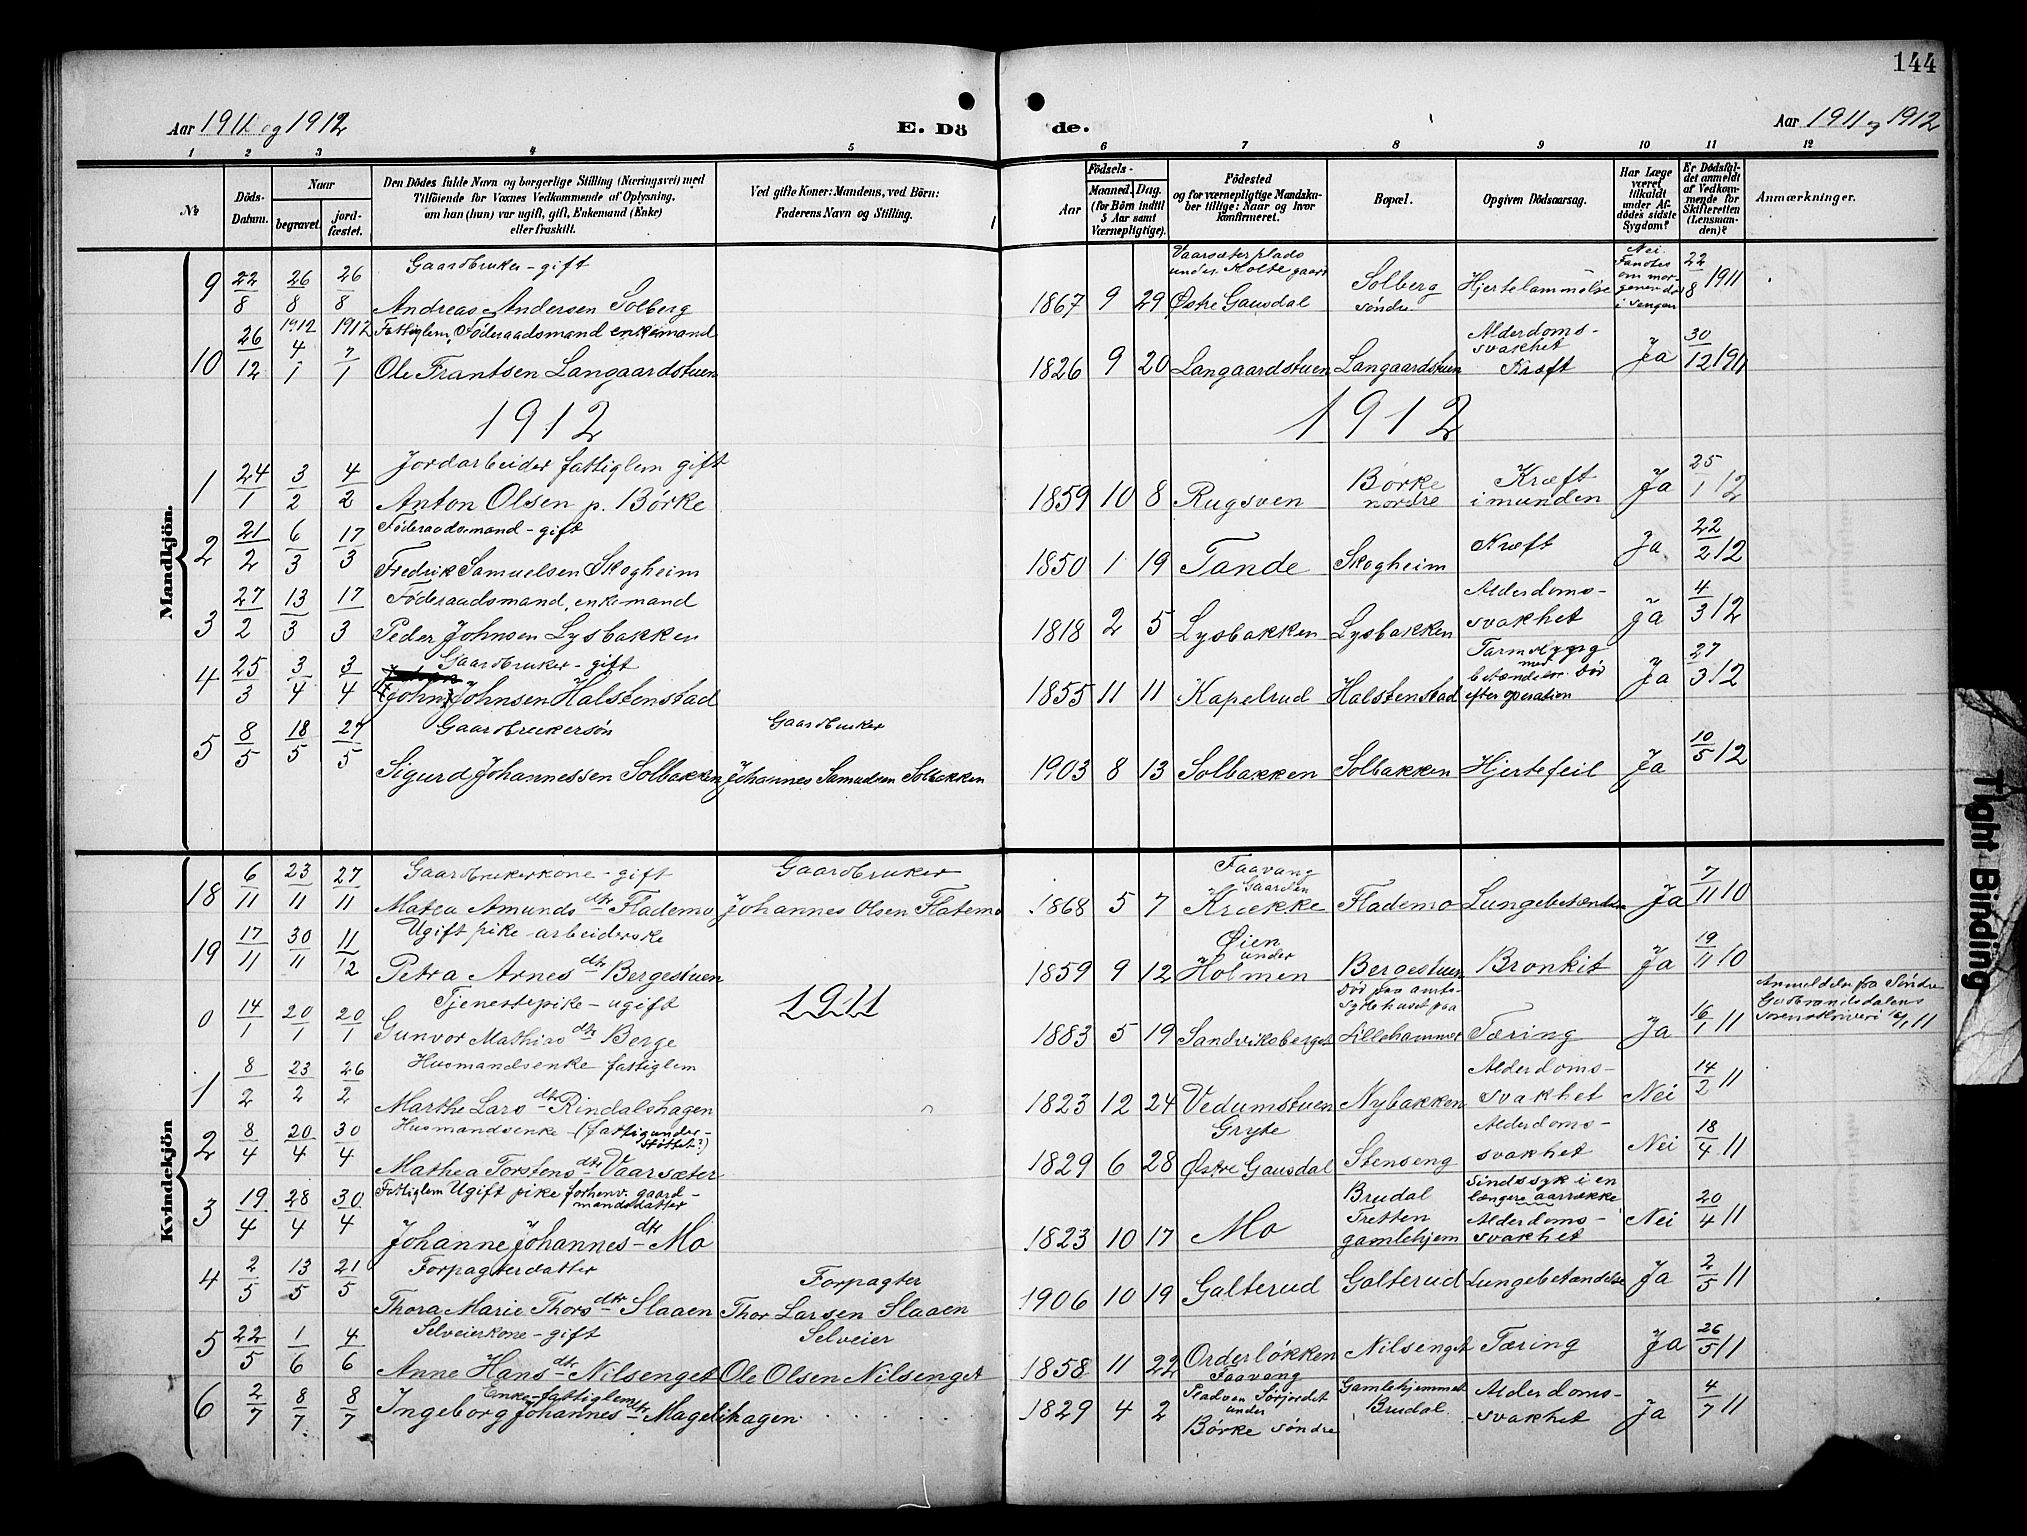 144
Aar 1911 og 1912
E. Dö
de.
Aar 1911 og 1912
1 2 3 4 5 6 7 8 9 10 11 12
№
Döds-Datum.
Naar
begravet.
jord-fæstet.
Den Dödes fulde Navn og borgerlige Stilling (Næringsvei) med
Tilföiende for Voxnes Vedkommende af Oplysning,
om han (hun) var ugift, gift, Enkemand (Enke)
eller fraskilt.
Ved gifte Koner: Mandens, ved Börn:
Faderens Navn og Stilling.
Födsels-
Aar
Maaned. Dag.
(for Börn indtil
5 Aar samt
Værnepligtige).
Födested
og for værnepligtige Mandska-
ber tillige: Naar og hvor
konfirmeret.
Bopæl.
Opgiven Dödsaarsag.
Har Læge
været
tilkaldt
under Af-
dödes sidste
Sygdom?
Er Dödsfal-
det anmeldt
af Vedkom-
mende for
Skifteretten
(Lensman-
den)?
Anmærkninger.
Mandkjön.
9 22/8 26/8 26/8 Gaardbruker - gift
Andreas Andersen Solberg
1867 9 29 Vaarsæter plads
under Holte gaard
Østre Gausdal
Solberg
søndre
Hjertelammelse
Nei
Fandtes
om mor-
genen død
i sengen
22/8 1911
10 26/12 1912 4/1 1912 7/1 Fattiglem, Føderaadsmand enkemand
Ole Frantsen Langaardstuen
1826 9 20 Langaardstuen Langaardstuen
Alderdoms-
svakhet
Kræft
Ja 30/12 1911
1912
1912
1 24/1 3/2 4/2 Jordarbeider fattiglem gift
Anton Olsen p. Börke
1859 10 8 Rugsven Børke
nordre
Kræft
i munden
Ja 25/1 12
2 21/2 6/3 17/3 Føderaadsmand - gift
Fredrik Samuelsen Skogheim
1850 1 19 Tande Skogheim Kræft Ja 22/2 12
3 27/2 13/3 17/3 Føderaadsmand, enkemand
Peder Johnsen Lysbakken
1818 2 5 Lysbakken Lysbakken
Alderdoms-
svakhet
Ja 4/3 12
4 25/3 3/4 3/4 Gaardbruker - gift
(John) Johnsen Halstenstad
1855 11 11 Kapelrud Halstenstad
Tarmslyng
med
betændelse. Død
efter operation
Ja 27/3 12
5 8/5 18/5 27/5 Gaardbrukersøn
Sigurd Johannessen Solbakken
Gaardbruker
Johannes Samuelsen Solbakken
1903 8 13 Solbakken Solbakken Hjertefeil Ja 10/5 12
Kvindekjön
18 6/11 23/11 27/11 Gaardbrukerkone - gift
Matea Amunds dtr Flademo
Gaardbruker
Johannes Olsen Flatemo
1868 5 7 Faavang
Gaarden
Krække
Flademo Lungebetændelse Ja 7/11 10
19 17/11 30/11 11/12 Ugift pike - arbeiderske
Petra Arnes dtr Bergestuen
1859 9 12 Øien
under
Holmen
Bergestuen Bronkit Ja 19/11 10
1911
0 14/1 20/1 20/1 Tjenestepike - ugift
Gunvor Mathias dtr Berge
1883 5 19 Sandviksberget
Død paa amts-
sykehuset paa
Lillehammer
Tæring Ja 16/1 11
Anmeldt fra Søndre
Gudbrandsdalens
sorenskriveri 16/1 11
1 8/2 23/2 26/2 Husmandsenke fattiglem
Marthe Lars dtr Rindalshagen
1823 12 24 Vedumstuen Nybakken
Alderdoms-
svakhet
Nei 14/2 11
2 8/4 20/4 30/4 Husmandsenke - (fattigunder-
støttet?)
Mathea Torstens dtr Vaarsæter
1829 6 28 Gryte
Østre Gausdal
Stenseng
Alderdoms-
svakhet
Nei 18/4 11
3 19/4 28/4 30/4 Fattiglem Ugift pike forhenv. gaard-
mandsdatter
Johanne Johannes- dtr Mo
1823 10 17 Mo
Brudal
Tretten
gamlehjem
Sindssyk i en
længere aarrække
Alderdoms-
svakhet
Nei 20/4 11
4 2/5 13/5 21/5 Forpagterdatter
Thora Marie Thors dtr Slaaen
Forpagter
Thor Larsen Slaaen
1906 10 19 Galterud Galterud Lungebetændelse Ja 2/5 11
5 22/5 1/6 4/6 Selveierkone - gift
Anne Hans dtr Nilsenget
Selveier
Ole Olsen Nilsenget
1858 11 22 Orderløkken
Faavang
Nilsenget Tæring Ja 26/5 11
6 2/7 8/7 8/7 Enke-fattiglem
Ingeborg Johannes dtr Magelihagen
1829 4 2 Pladsen Sørjordet
under
Børke søndre
Gamlehjemmet
Brudal
Alderdoms-
-svakhet
Ja 4/7 11
Tight Binding